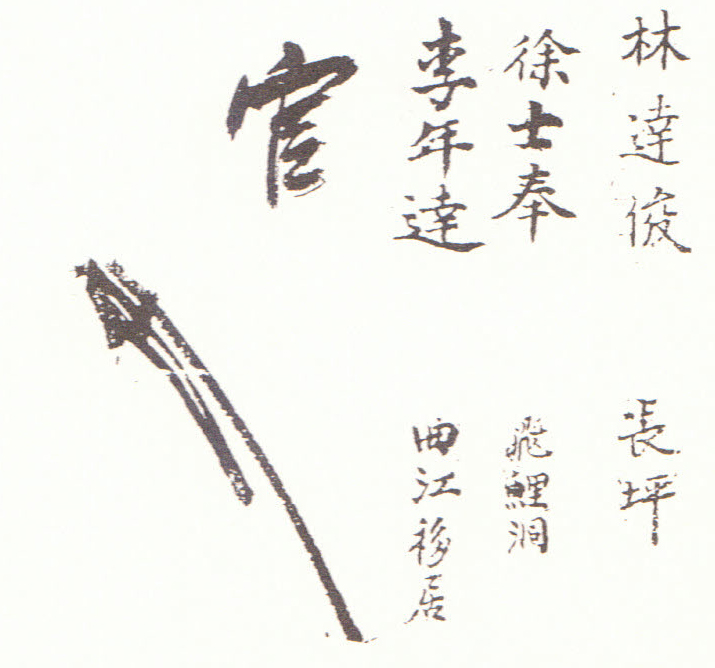 林達俊 長坪
徐士奉 飛鯉洞
李年達 曲江移居
官